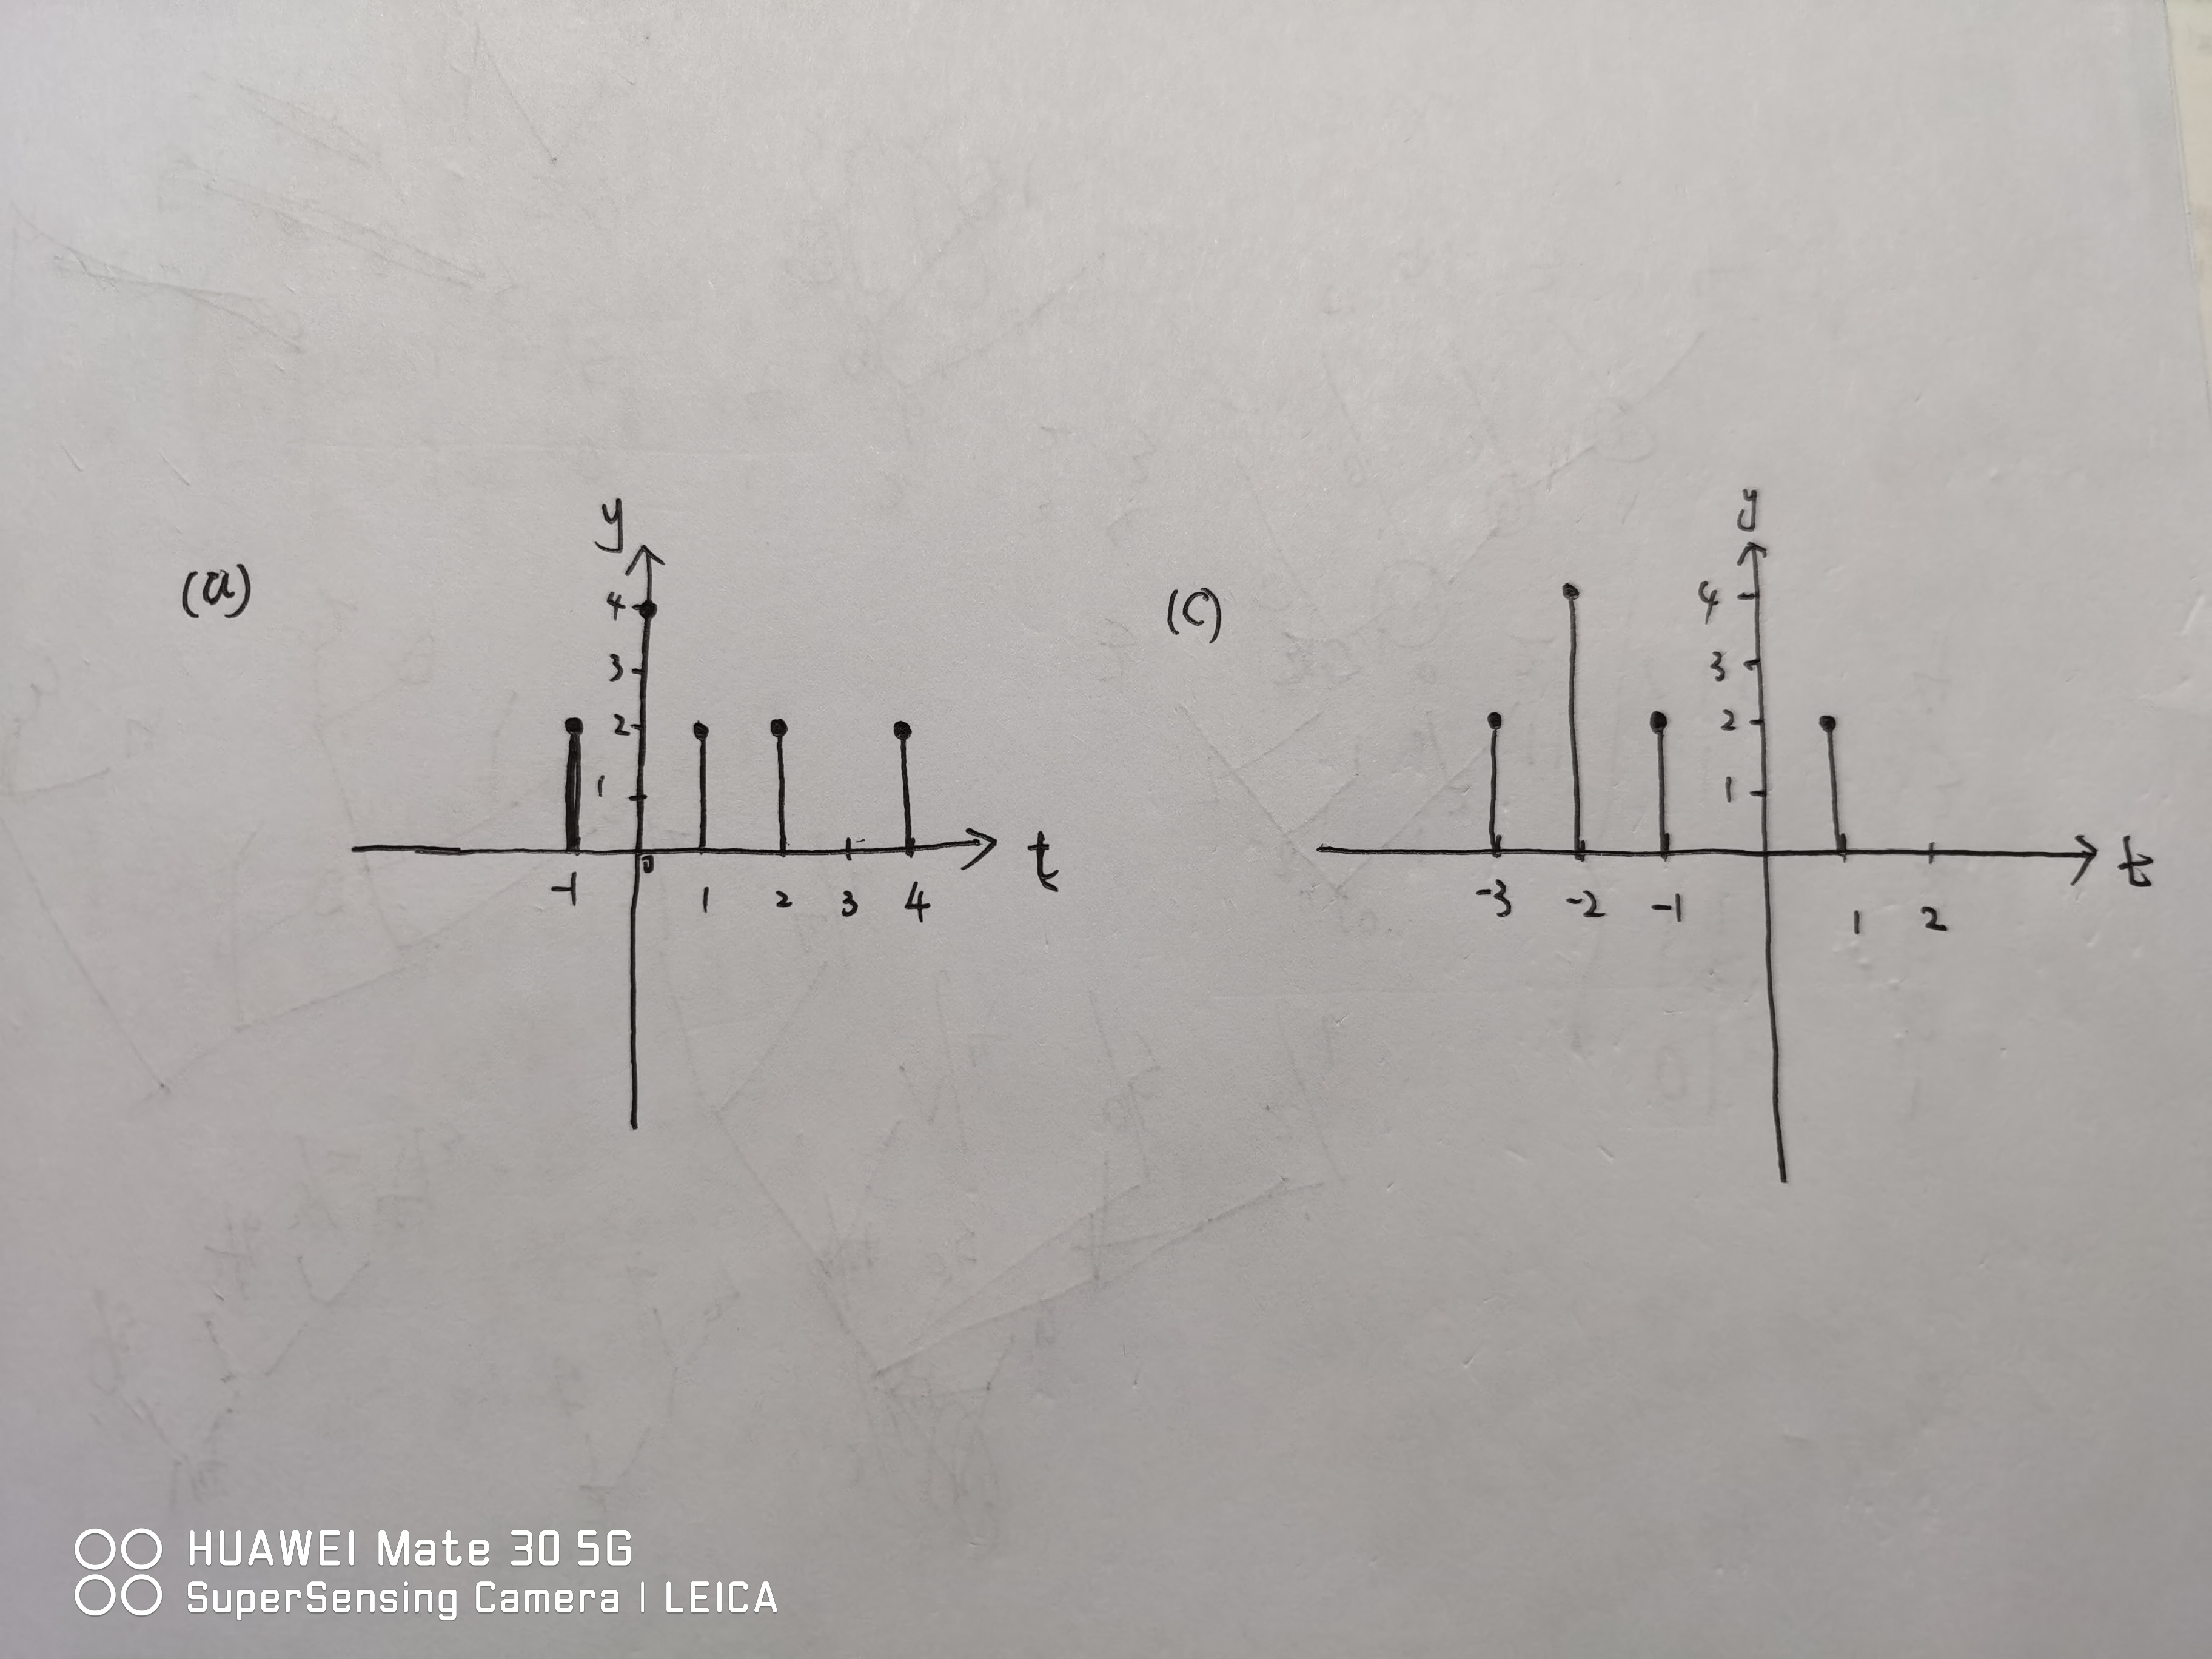 (a)
y
4
3
2
1
0
-1 1 2 3 4
t
(C)
y
4
3
2
1
-3 -2 -1 1 2
t
HUAWEI Mate 30 5G
SuperSensing Camera | LEICA